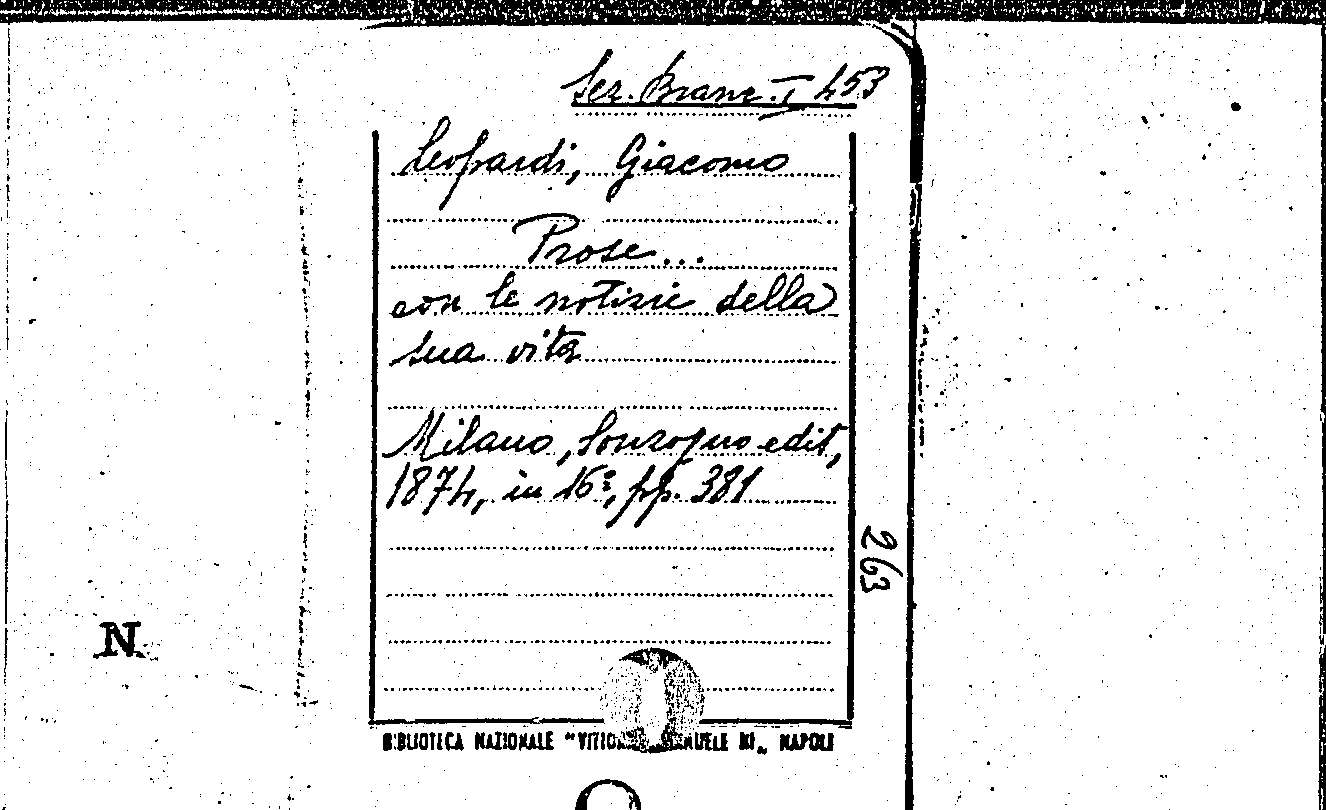 Sez. Branc. I 453
Leopardi, Giacomo
Prose...
con le notizie della
sua vita
Milano, Sonzogno edit,
1874, in 16º, pp. 381
263
N
BIBLIOTECA NAZIONALE "VITTORIO EMANUELE III„ NAPOLI